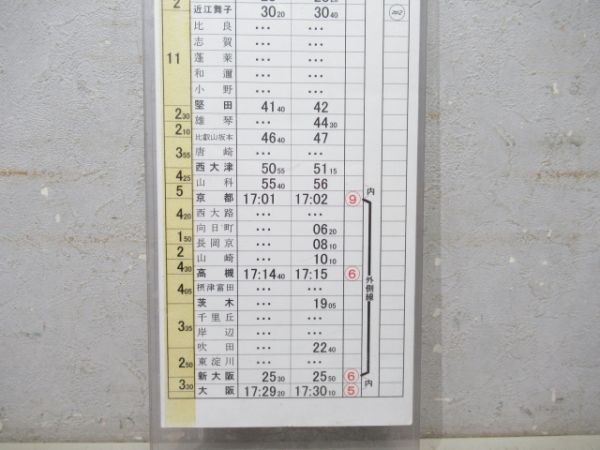 2 近江舞子 30 20 30 40
比良 … …
志賀 … …
11 蓬莱 … …
和邇 … …
小野 … …
堅田 41 40 42
2 30 雄琴 … 44 30
2 10 比叡山坂本 46 40 47
3 55 唐崎 … …
西大津 50 55 51 15
4 25 山科 55 40 56
5 京都 17:01 17:02 9 内
4 20 西大路 … …
向日町 … 06 20
1 50 長岡京 … 08 10
2 山崎 … 10 10
4 30 高槻 17:14 40 17:15 6 外側線
4 05 摂津富田 … …
茨木 … 19 05
3 35 千里丘 … …
岸辺 … …
吹田 … 22 40
2 50 東淀川 … …
新大阪 25 30 25 50 6
3 30 大阪 17:29 20 17:30 10 5 内